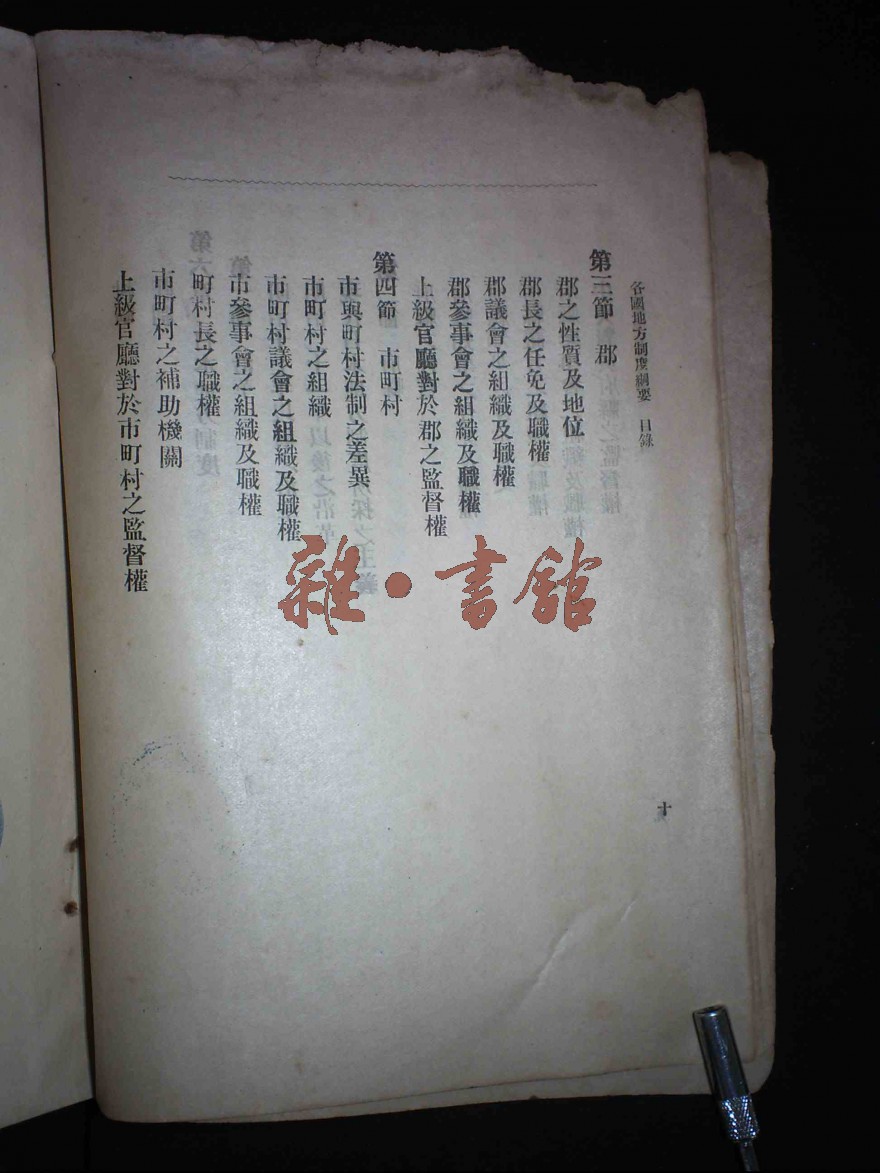 各國地方制度綱要 目錄
十
第三節 郡
郡之性質及地位
郡長之任免及職權
郡議會之組織及職權
郡參事會之組織及職權
上級官廳對於郡之監督權
第四節 市町村
市與町村法制之差異
市町村之組織
市町村議會之組織及職權
市參事會之組織及職權
町村長之職權
市町村之補助機關
上級官廳對於市町村之監督權
雜·書館